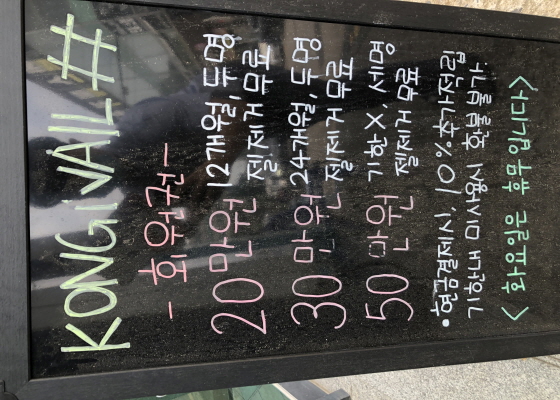 KONGNAIL#
- 회원권 -
20만원 12개월, 두명
젤제거 무료
30만원 24개월, 두명
젤제거 무료
50만원 기한X, 세명
젤제거 무료
• 현금결제시, 10%추가적립
기한내 미사용시 환불불가
< 화요일은 휴무입니다>